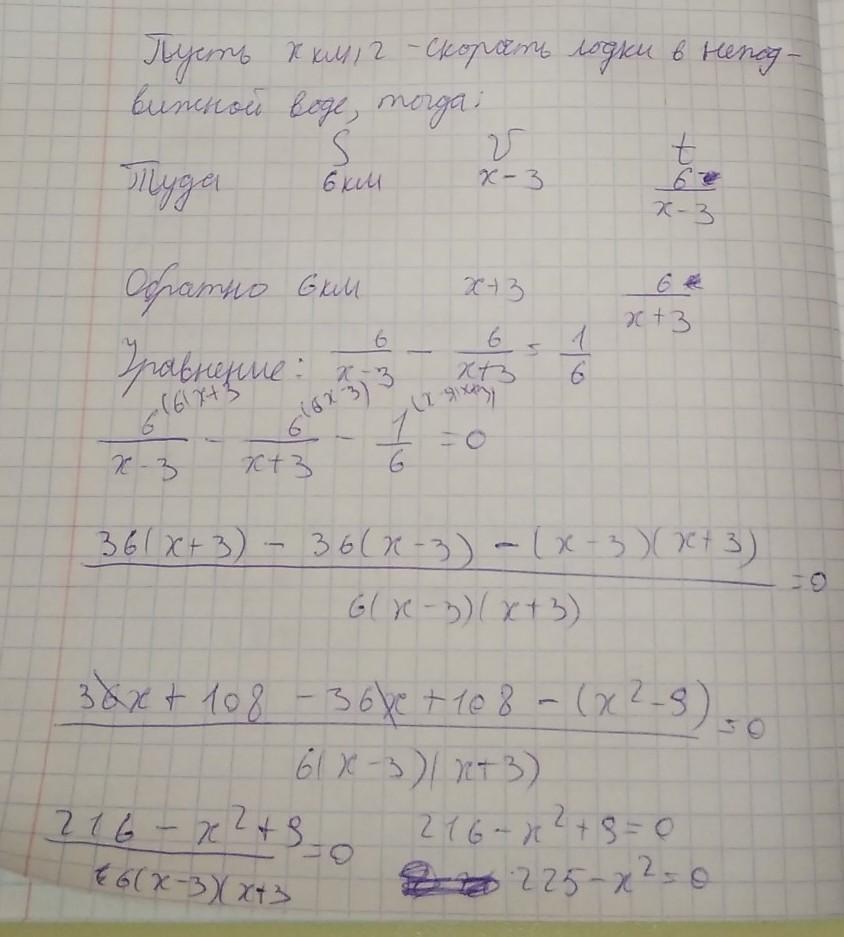 Пусть x км/г - скорость лодки в непод-
вижной воде, тогда:
S V t
Туда 6км x-3 6/(x-3)
Обратно 6км x+3 6/(x+3)
Уравнение: 6/(x-3) - 6/(x+3) = 1/6
6^(6(x+3)/(x-3) - 6^(6x-3)/(x+3) - 1^(x-3)(x+3)/6 = 0
(36(x+3) - 36(x-3) - (x-3)(x+3))/(6(x-3)(x+3)) = 0
(36x + 108 - 36x + 108 - (x²-9))/(6(x-3)(x+3)) = 0
(216 - x² + 9)/(6(x-3)(x+3) = 0 216 - x² + 9 = 0
225 - x² = 0